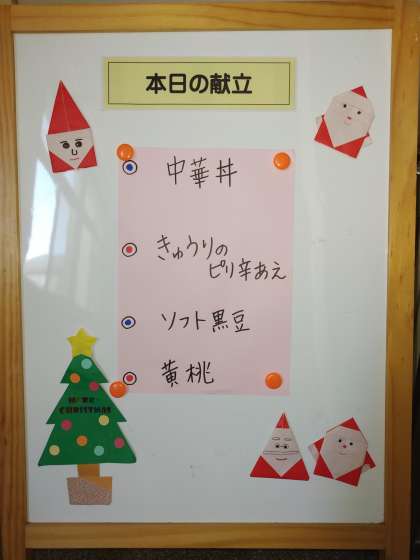 本日の献立
中華丼
きゅうりの
ピリ辛あえ
ソフト黒豆
黄桃
MERRY
CHRISTMAS